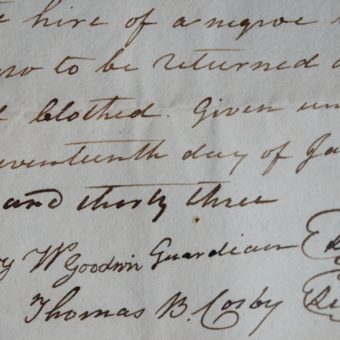 hire of a negroe
to be returned
blothed. Given un
eventeenth day of Ja
and thirty three
Wm Goodwin Guardian
Thomas B. Cosby